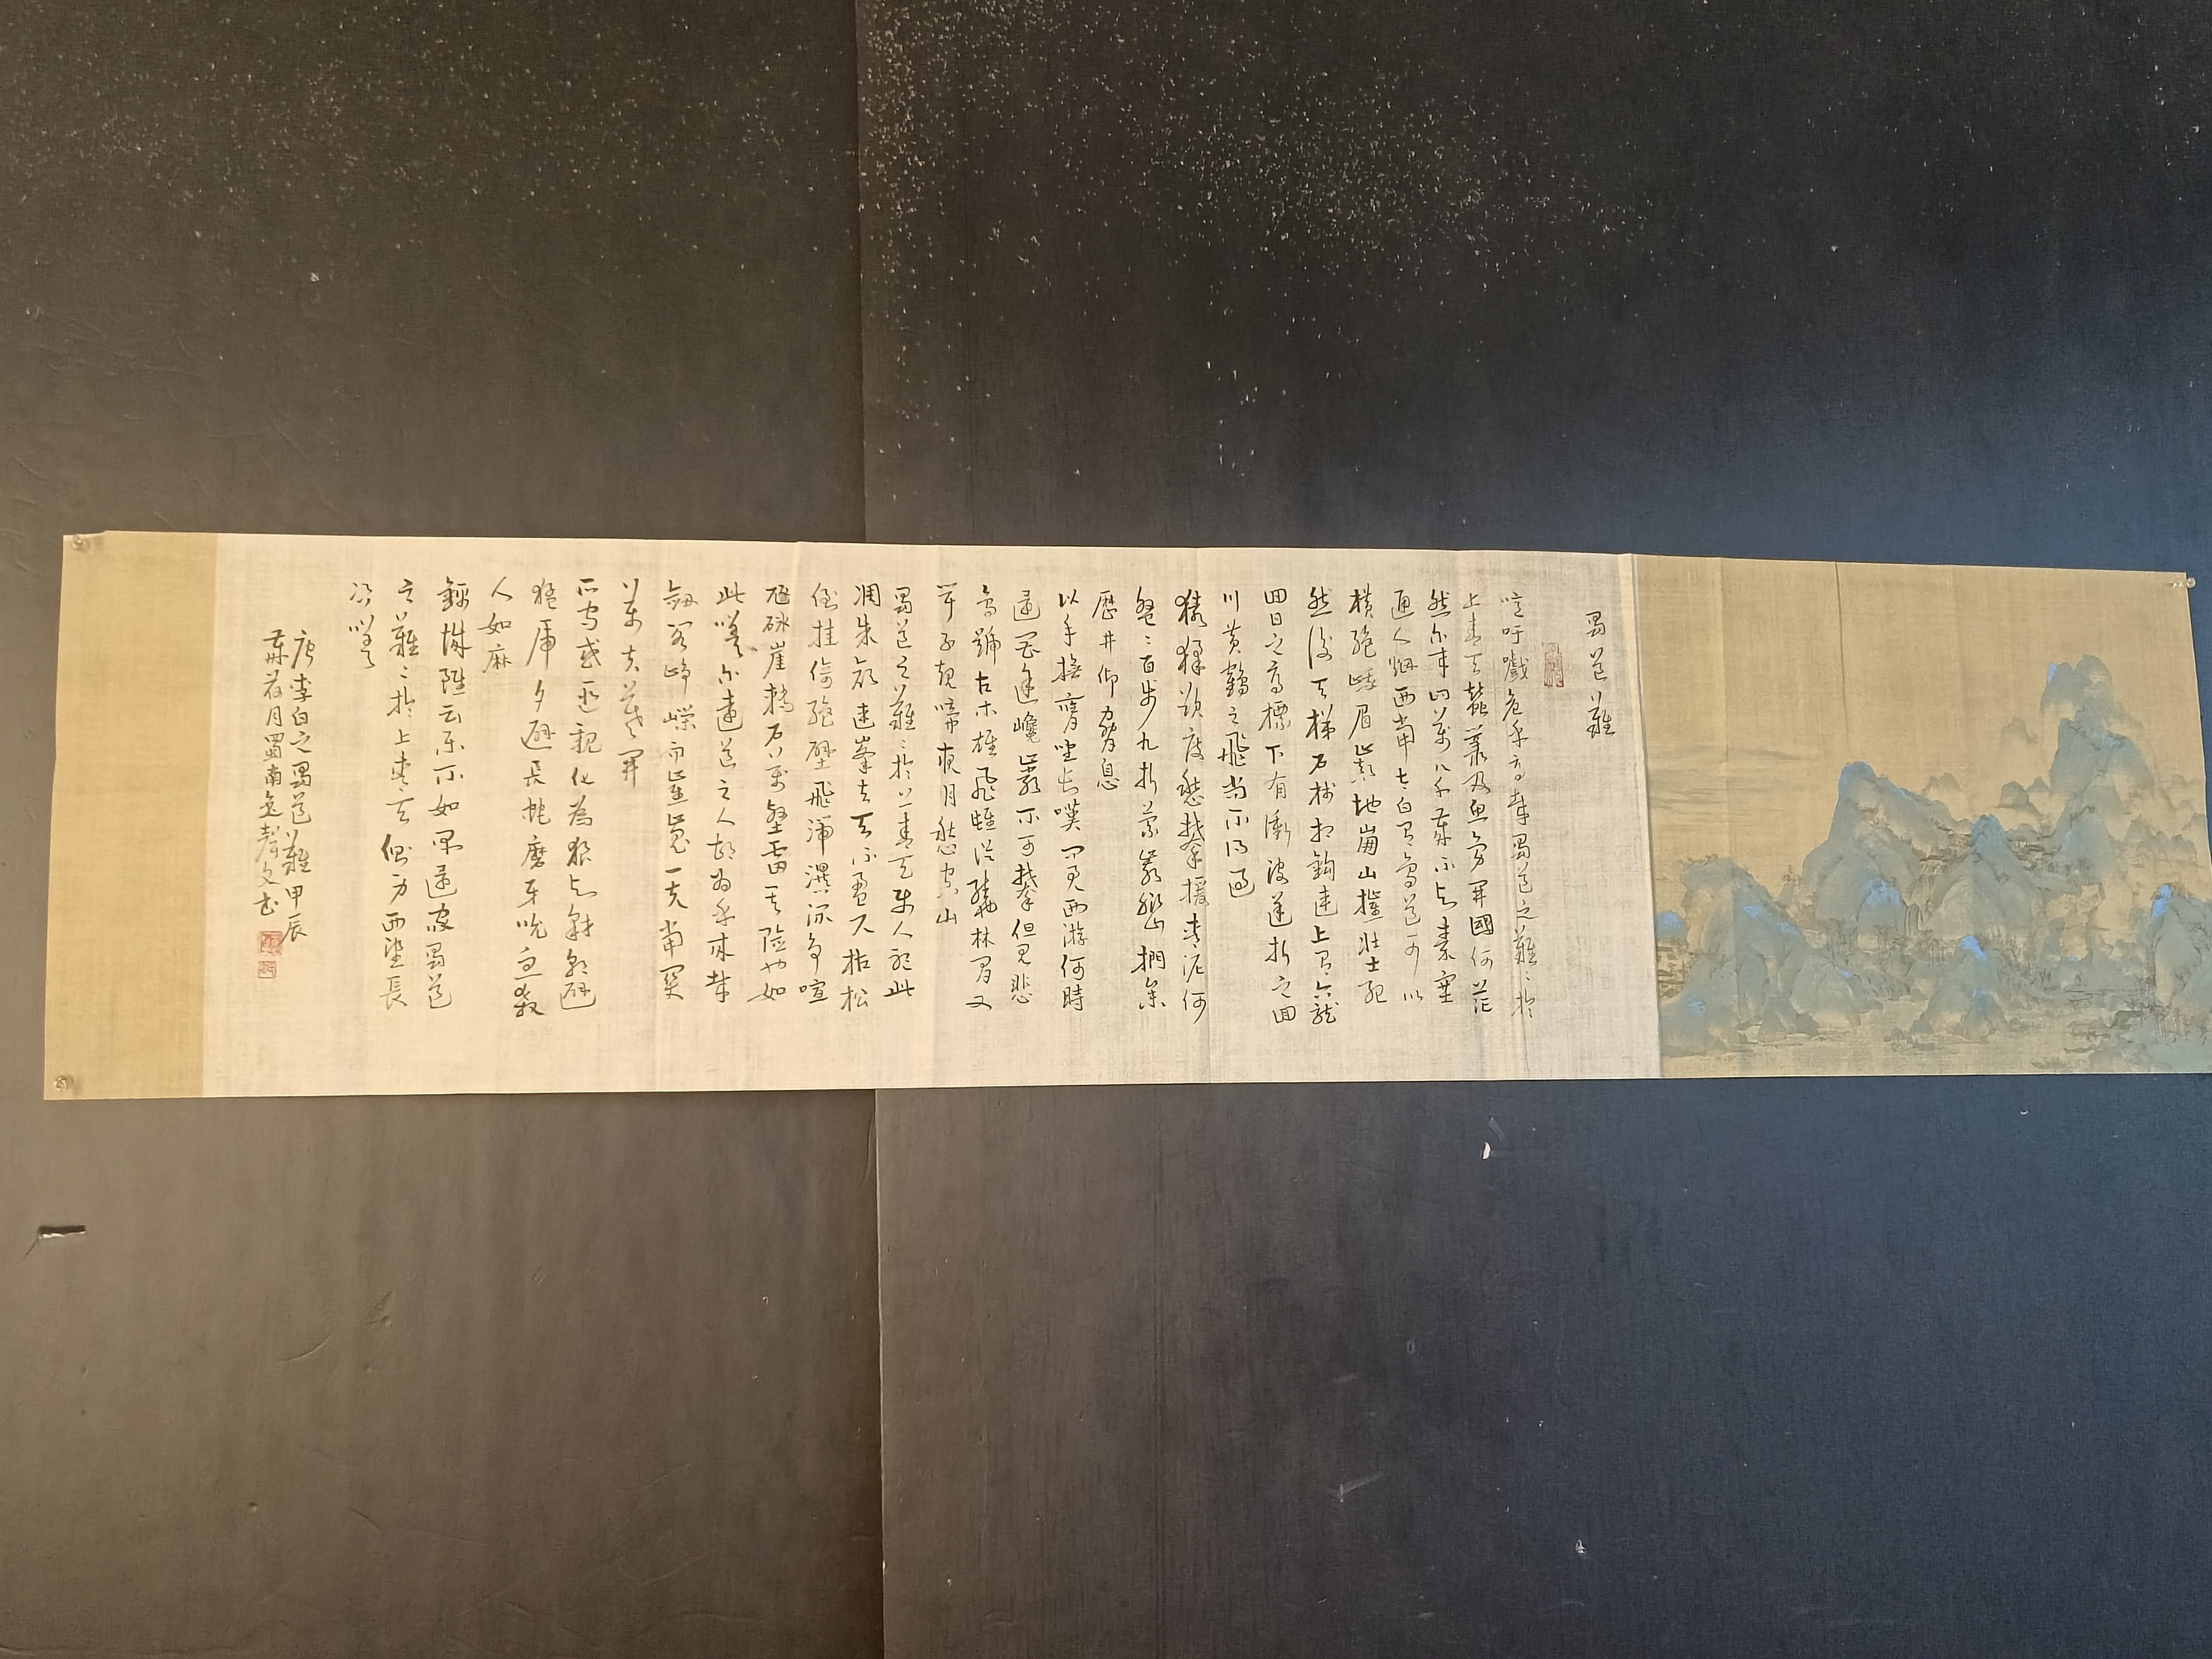 蜀道難
噫吁戲危乎高哉蜀道之難難於
上青天蠶叢及魚鳧開國何茫
然尔來四萬八千歲不與秦塞
通人烟西當太白有鳥道可以
橫絕峨眉巔地崩山摧壯士死
然後天梯石棧相鉤連上有六龍
回日之高標下有衝波逆折之回
川黃鶴之飛尚不得過
猿猱欲度愁攀援青泥何
盤盤百步九折縈巖巒捫參
歷井仰脅息
以手撫膺坐長嘆問君西游何時
還畏途巉巖不可攀但見悲
鳥號古木雄飛雌從繞林間又
聞子規啼夜月愁空山
蜀道之難難於上青天使人聽此
凋朱顏連峯去天不盈尺枯松
倒挂倚絕壁飛湍瀑流爭喧
豗砯崖轉石萬壑雷其險也如
此嗟尔遠道之人胡為乎來哉
劍閣崢嶸而崔嵬一夫當關
萬夫莫開
所守或匪親化為狼與豺朝避
猛虎夕避長蛇磨牙吮血殺
人如麻
錦城雖云樂不如早還家蜀道
之難難於上青天側身西望長
咨嗟
唐李白之蜀道難甲辰
歲荷月蜀南逸聲文書